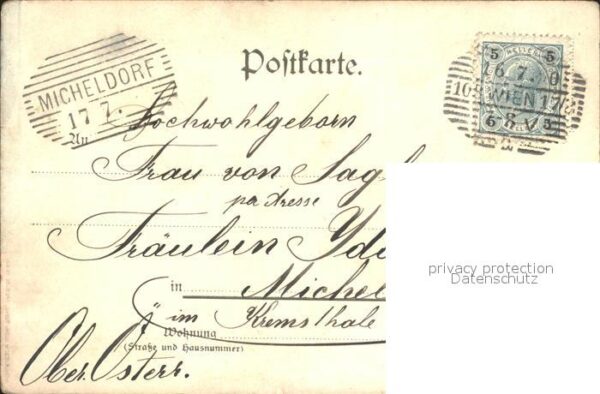 Postkarte.
MICHELDORF
17 7.
5 HELLER 5
16.7. 0
WIEN 1
8 V
An
Hochwohlgeborn
Frau von
pa Adresse
Fräulein
in
im Kremsthale
Wohnung
(Straße und Hausnummer)
Ober Österr.
privacy protection
Datenschutz